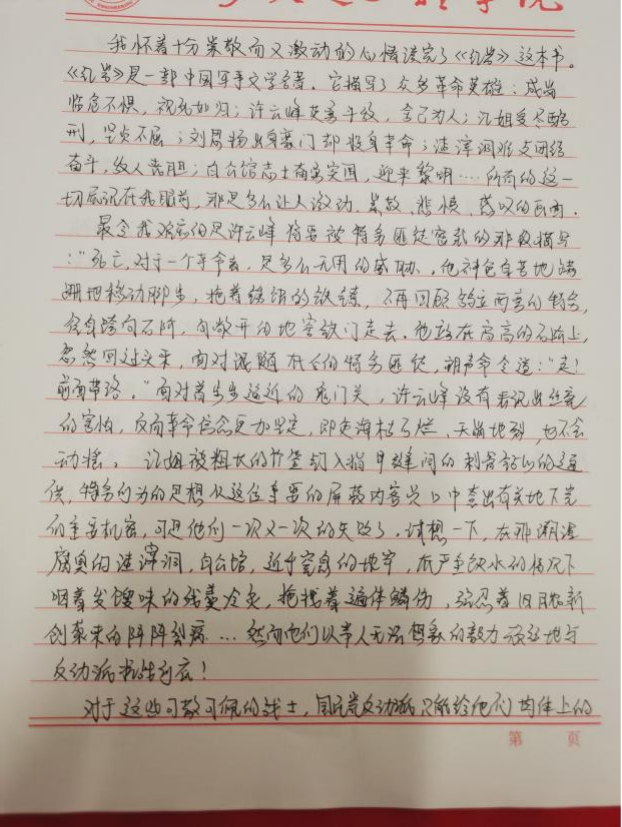 学院
我怀着十分崇敬而又激动的心情读完了《红岩》这本书。
《红岩》是一部中国军事文学名著。它描写了众多革命英雄：成岗
临危不惧，视死如归；许云峰英勇斗敌，舍己为人；江姐受尽酷
刑，坚贞不屈；刘思扬出身豪门却投身革命；渣滓洞难友团结
奋斗，敌人丧胆；白公馆志士奋勇突围，迎来黎明……所有的这一
切展现在我眼前，那是多么让人激动、崇敬、悲愤、感叹的画面。
最令我难忘的是许云峰将要被特务匪徒密杀的那段描写
："死亡，对于一个革命者，是多么无用的威胁。他神色自若地蹒
跚地移动脚步，拖着绣饰的铁镣，不再回顾鹄立两旁的特务，
径自跨向石阶，向敞开的地窖铁门走去。他站在高高的石阶上，
忽然回过头来，面对跟随在后的特务匪徒，朗声命令道："走！
前面带路。"面对着步步逼近的鬼门关，许云峰没有表现出丝毫
的害怕，反而革命信念更加坚定，即使海枯石烂、天崩地裂，也不会
动摇。江姐被粗长的竹签钉入指甲缝间的刺骨钻心的逼
供，特务们为的是想从这位重要的
口中查出有关地下党
的重要机密，可是他们一次又一次的失败了。试想一下，在那潮湿
腐臭的渣滓洞，白公馆，近乎窒息的地牢，在严重缺水的情况下
咽着发馊味的残羹冷炙，拖拽着遍体鳞伤，强忍着旧日和新
创袭来的阵阵裂痛…然而他们以常人无法想象的毅力顽强地与
反动派抗战到底！
对于这些可敬可佩的战士，国民党反动派只能给他们肉体上的
第 页